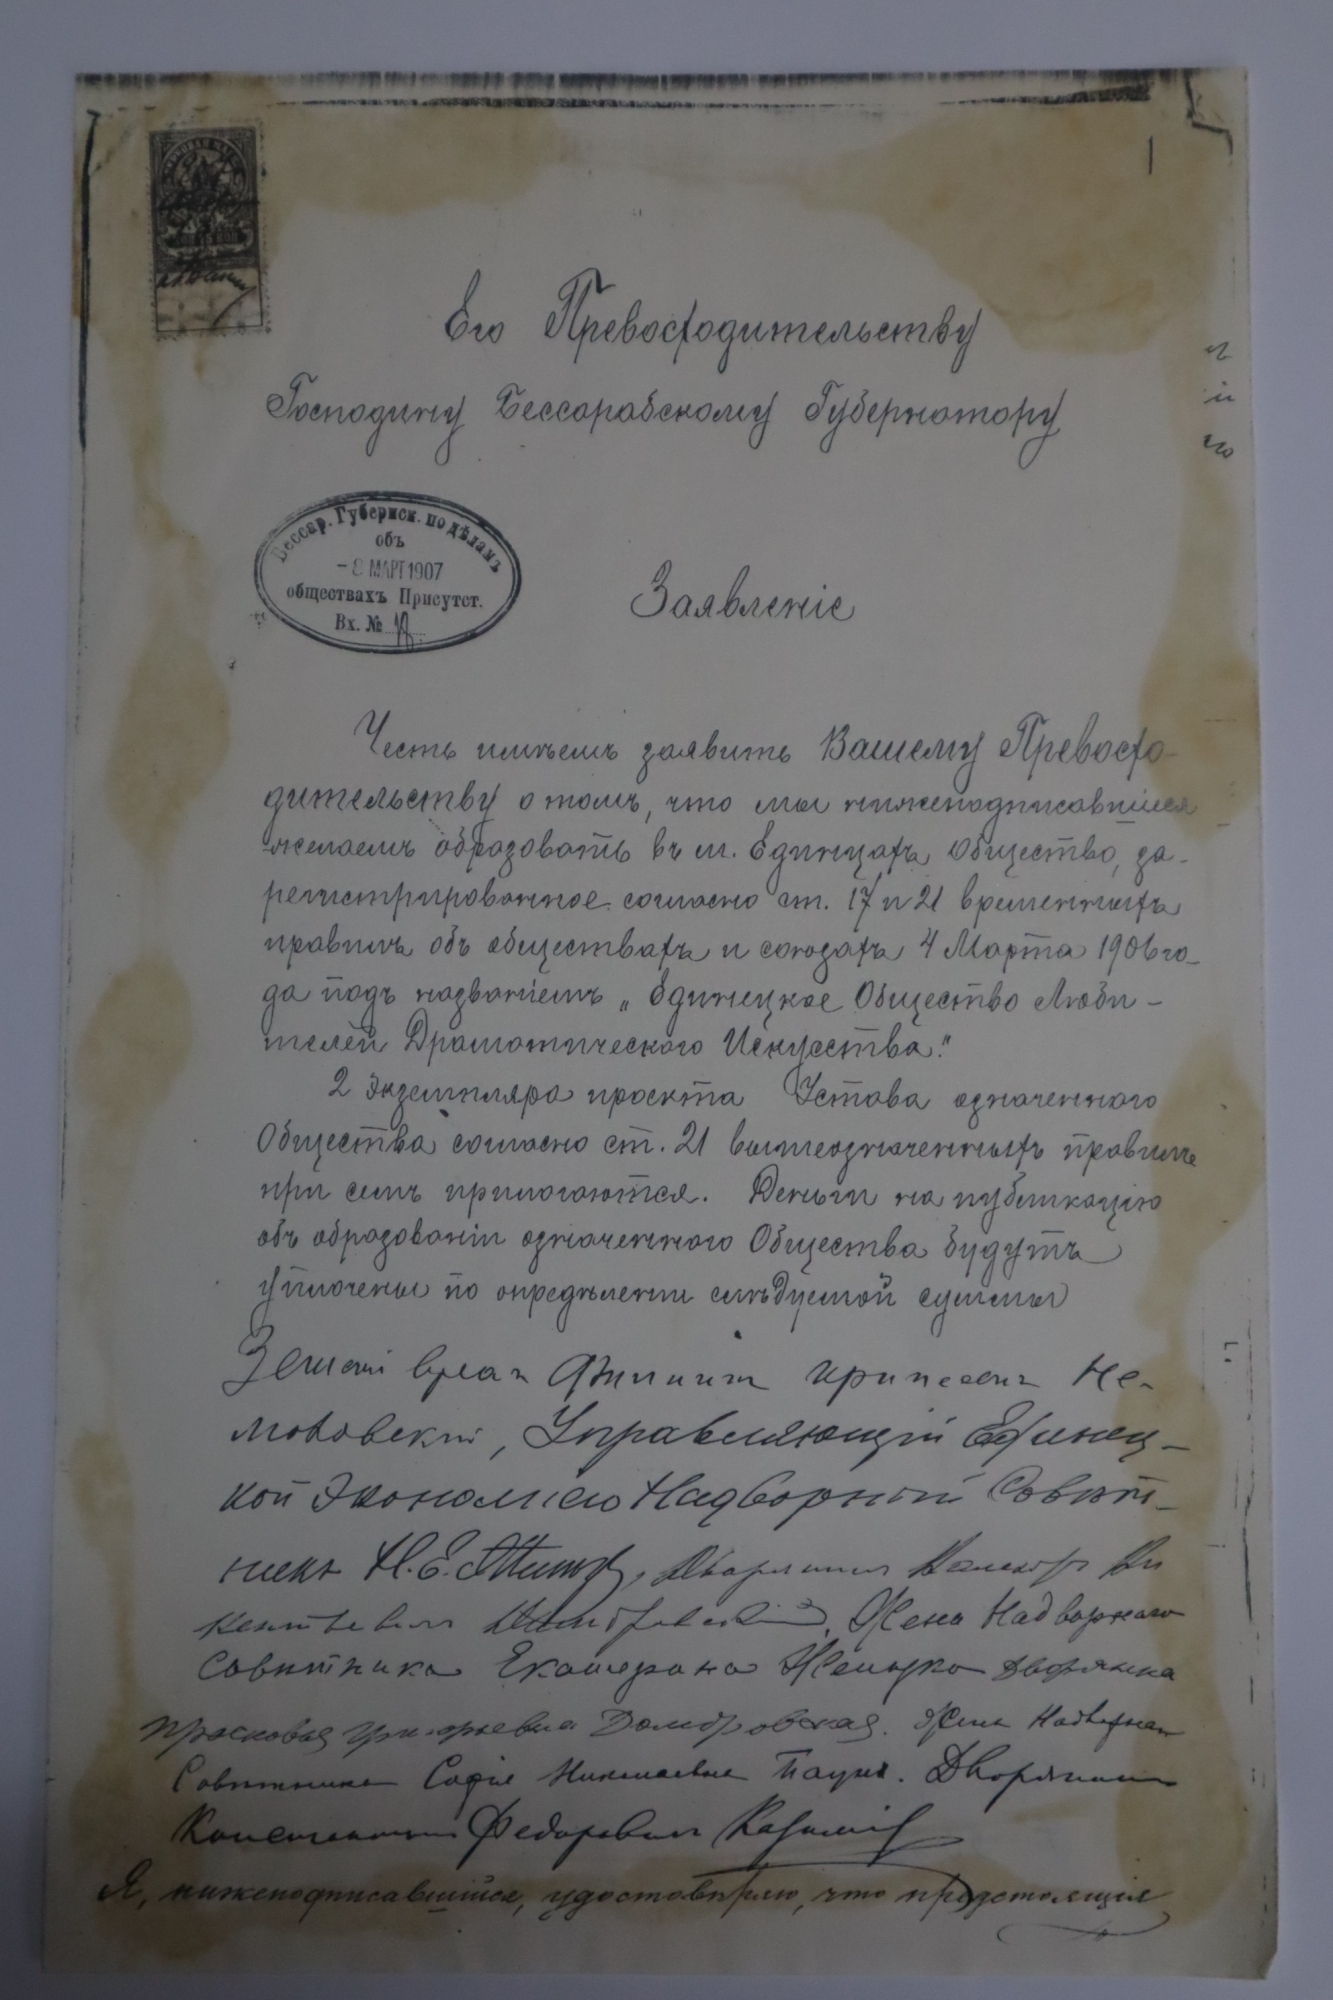 1
Его Превосходительству
Господину Бессарабскому Губернатору
Бессар. Губернск. по дѣламъ
объ
- 8 МАРТ 1907
обществахъ Присутст.
Вх. №
Заявленіе
Честь имѣемъ заявить Вашему Превосхо-
дительству о томъ, что мы нижеподписавшіеся
желаемъ образовать въ м. Единцахъ Общество, за-
регистрированное согласно ст. 17 и 21 временныхъ
правилъ объ обществахъ и союзахъ 4 Марта 1906 го-
да подъ названіемъ „Единецкое Общество Люби-
телей Драматическаго Искусства."
2 экземпляра проекта Устава означеннаго
Общества согласно ст. 21 вышеозначенныхъ правилъ
при семъ прилагаются. Деньги на публикацію
объ образованіи означеннаго Общества будутъ
уплочены по опредѣленіи слѣдуемой суммы
Земскій врачъ
Управляющій Единец-
кой Экономіею Надворный Совѣт-
никъ Н. Е. Дворянинъ
Жена Надворнаго
Совѣтника Екатерина Дворянка
Прасковья Григорьевна Домбровская. Жена Надворнаго
Совѣтника Софія Николаевна Дворянинъ
Константинъ Федоровичъ
Я, нижеподписавшійся, удостовѣряю, что предстоящія